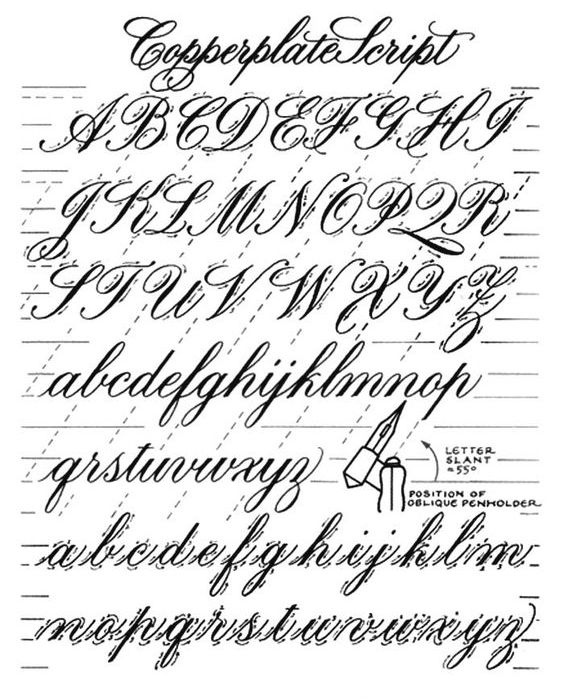 Copperplate Script
ABCDEFGHI
JKLMNOPQR
STUVWXYZ
abcdefghijklmnop
qrstuvwxyz
LETTER
SLANT
=55°
POSITION OF
OBLIQUE PENHOLDER
abcdefghijklm
nopqrstuvwxyz